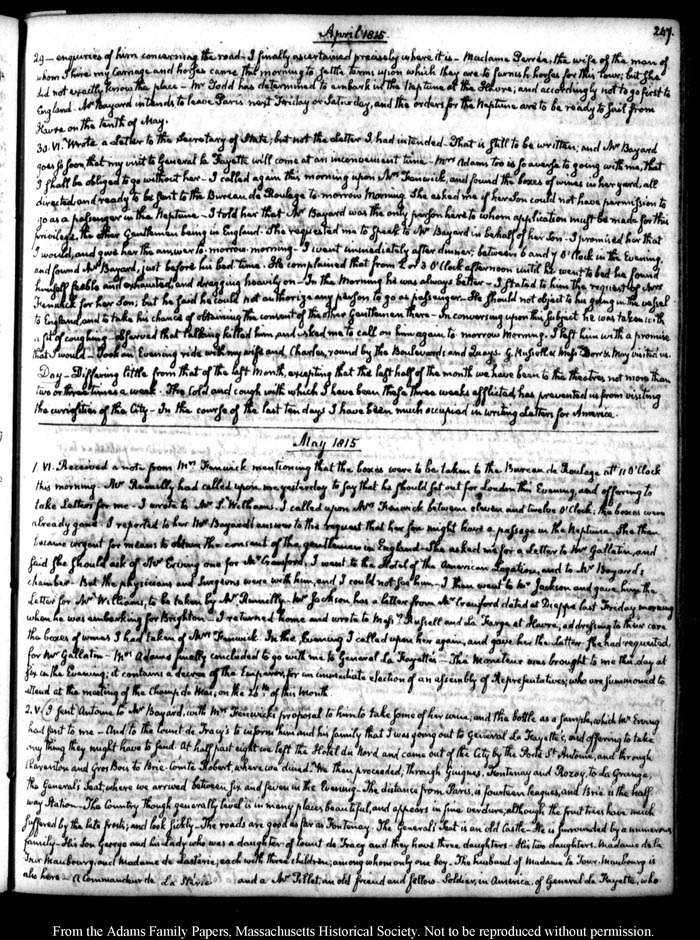 April 1815.
247.
29 — enquiries of him concerning the road — I finally ascertained precisely where it is — Madame Perrée, the wife of the man of
whom I hire my Carriage and horses came this morning to settle terms upon which they are to furnish horses for this tour; but she
did not exactly know the place — Mr Todd has determined to embark in the Neptune at the Havre; and accordingly not to go first to
England. Mr Bayard intends to leave Paris next Friday or Saturday, and the orders for the Neptune are to be ready to sail from
Havre on the tenth of May.
30. VI. Wrote a Letter to the Secretary of State; but not the Letter I had intended — That is still to be written; and Mr Bayard
goes so soon that my visit to General la Fayette will come at an inconvenient time — Mrs Adams too is so averse to going with me, that
I shall be obliged to go without her — I called again this morning upon Mrs Fenwick, and found the boxes of wines in her yard, all
directed and ready to be sent to the Bureau de Roulage to-morrow Morning. She asked me if her Son could not have permission to
go as a passenger in the Neptune — I told her that Mr Bayard was the only person here to whom application must be made for this
privilege, the other Gentlemen being in England. She requested me to speak to Mr Bayard in behalf of her Son — I promised her that
I would, and give her the answer to-morrow morning — I went immediately after dinner, between 6 and 7 O'Clock in the Evening,
and found Mr Bayard, just before his bed-time. He complained that from 2 or 3 O'Clock afternoon until he went to bed he found
himself feeble and exhausted, and dragging heavily on — In the Morning he was always better — I stated to him the request of Mrs
Fenwick for her Son; but he said he could not authorize any person to go as passenger — He should not object to his going in the vessel
to England, and to take his chance of obtaining the consent of the other Gentlemen there — In conversing upon this subject he was taken with
a fit of coughing — observed that talking killed him, and asked me to call on him again to morrow Morning. I left him with a promise
that I would — Took an Evening ride with my wife and Charles, round by the Boulevards and Quays. G. & Miss Dorr & May visited us.
Day — Differing little from that of the last Month, excepting that the last half of the month we have been to the theatres not more than
two or three times a week. The cold and cough with which I have been these three weeks afflicted has prevented us from visiting
the curiosities of the City — In the course of the last ten days I have been much occupied in writing Letters for America.
May 1815
1. VI. Received a note from Mrs Fenwick mentioning that the boxes were to be taken to the Bureau de Roulage at 11 O'Clock
this morning — Mr Rumilly had called upon me yesterday to say that he should set out for London this Evening, and offering to
take Letters for me — I wrote to Mr S. Williams. I called upon Mrs Fenwick between eleven and twelve O'Clock; the boxes were
already gone. I reported to her Mr Bayard's answer to the request that her Son might have a passage in the Neptune. She then
became urgent for means to obtain the consent of the gentlemen in England — She asked me for a Letter to Mr Gallatin, and
said she should ask of Mr Erving one for Mr Crawford, I went to the Hotel of the American Legation, and to Mr Bayard's
chamber — But the physicians and Surgeons were with him, and I could not see him — I then went to Mr Jackson and gave him the
Letter for Mr Williams, to be taken by Mr Rumilly — Mr Jackson has a letter from Mr Crawford dated at Dieppe last Friday morning
when he was embarking for Brighton — I returned home and wrote to Messrs Russell and La Farge at Havre, addressing to their care
the boxes of wines I had taken of Mrs Fenwick. In the Evening I called upon her again, and gave her the Letter she had requested,
for Mr Gallatin — Mrs Adams finally concluded to go with me to General La Fayette's — The Moniteur was brought to me this day at
six in the Evening; it contains a decree of the Emperor, for an immediate election of an assembly of Representatives; who are summoned to
attend at the meeting of the Champ de Mai; on the 26th of this Month
2. V. I sent Antoine to Mr Bayard, with Mrs Fenwick's proposal to him to take some of her wine; and the bottle as a sample, which Mr Erving
had sent to me — And to the Count de Tracy's to inform him and his family that I was going to General La Fayette's, and offering to take
any thing they might have to send. At half past eight we left the Hotel du Nord and came out of the City by the Porte St Antoine, and through
Charenton and Gros Bois to Brie-Comte Robert, where we dined. We then proceeded, through Guignes, Fontenay and Rozoy, to La Grange,
the General's Seat, where we arrived between six and seven in the Evening. The distance from Paris, is fourteen leagues, and Brie is the half-
way Station — The Country though generally level is in many places beautiful, and appears in fine verdure; although the fruit trees have much
suffered by the late frosts; and look sickly — The roads are good as far as Fontenay. The General's Seat is an old Castle — He is surrounded by a numerous
family — His Son George and his Lady who was a daughter of Count de Tracy and they have three daughters — His two daughters Madame de la
Tour Maubourg, and Madame de Lasterie; each with three children; among whom only one boy. The husband of Madame la Tour-Maubourg is
also here — A Commandeur de La Sterie and a Mr Pillet, an old friend and fellow-Soldier, in America, of General La Fayette, who
From the Adams Family Papers, Massachusetts Historical Society. Not to be reproduced without permission.